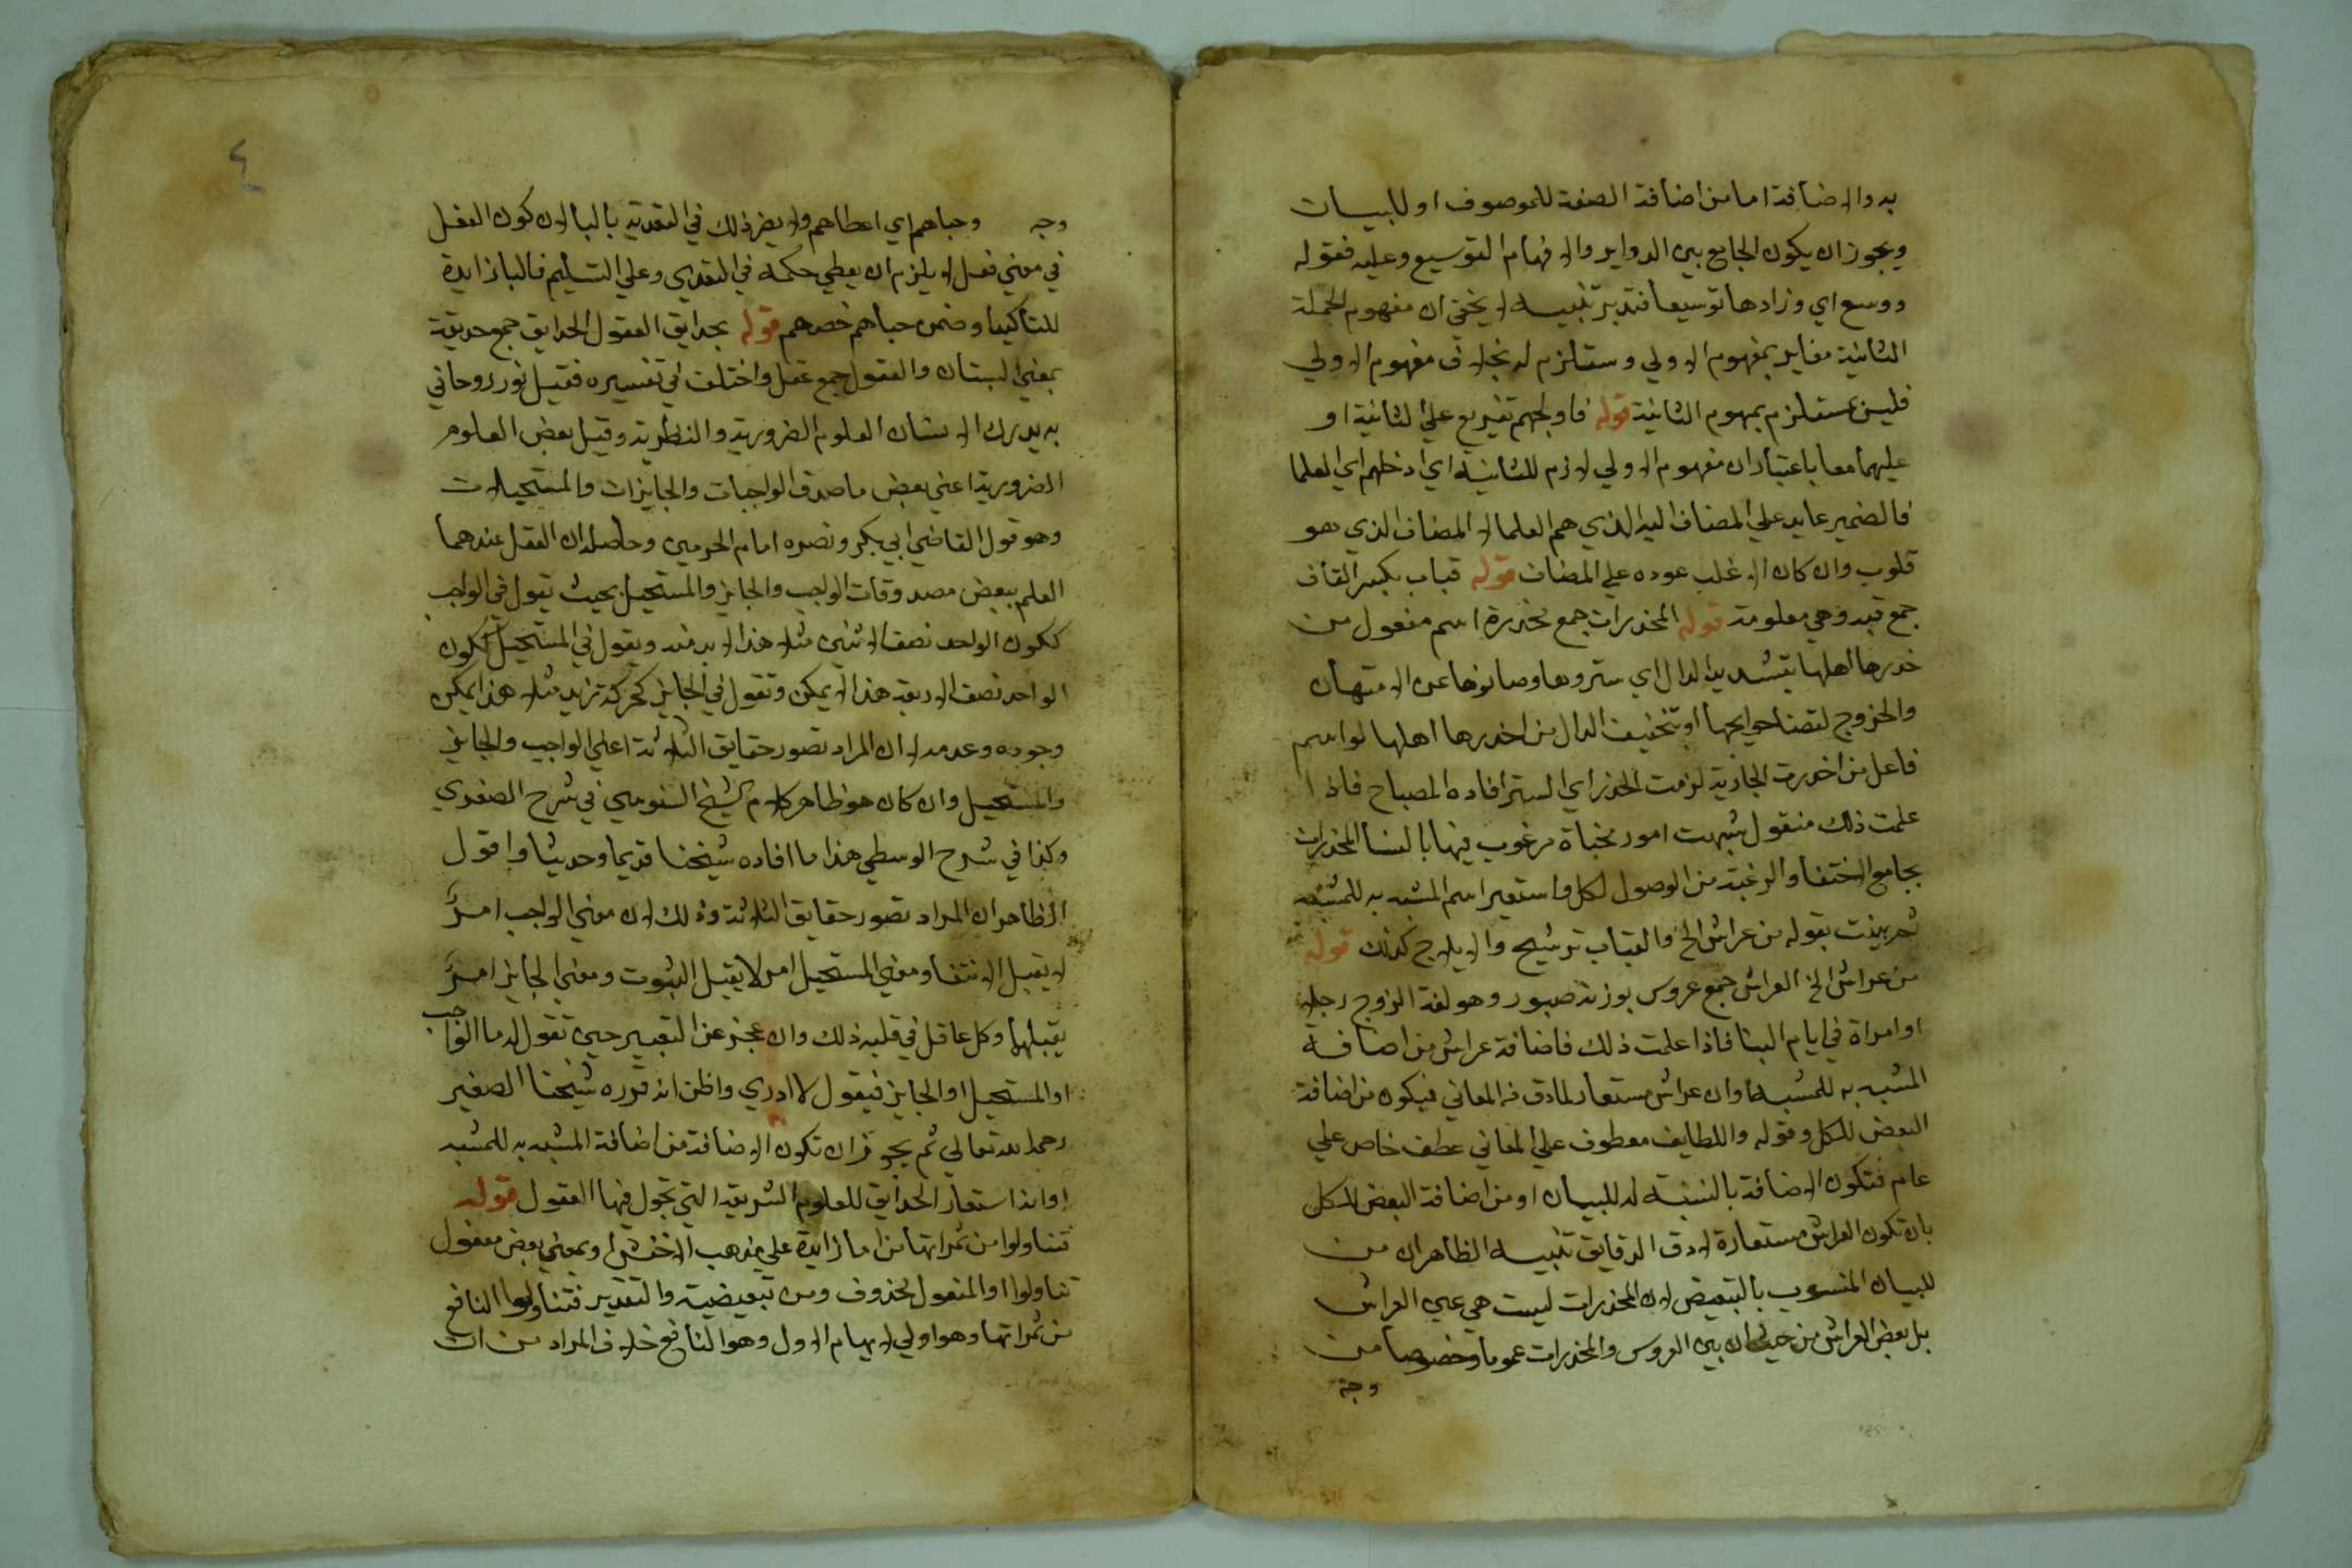 به والاضافة اما من اضافة الصفة للموصوف او للبيان
ويجوز ان يكون الجامع بين الدواير والافهام التوسيع وعليه فقوله
ووسع اي وزادها توسيعا فتدبر تنبيه لا يخفي ان مفهوم الجملة
الثانية مغاير بمفهوم الاولي ومستلزم له بخلاف مفهوم الاولي
فليس بمستلزم بمهوم الثانية قوله فاولجهم تفريع علي الثانية او
عليهما معا باعتبار ان مفهوم الاولي لازم للثانية اي ادخلهم اي العلما
فالضمير عايد علي المضاف اليه الذي هم العلما لا المضاف الذي هو
قلوب وان كان الاغلب عوده علي المضاف قوله قباب بكسر القاف
جمع قبه وهي معلومة قوله المخدرات جمع مخدرة اسم مفعول من
خدرها اهلها بتشديد الدال اي ستروها وصانوها عن الامتهان
والخروج لقضا حوايجها او بتخفيف الدال من اخدرها اهلها او اسم
فاعل من اخدرت الجارية لزمت الخدر اي الستر افاده المصباح فاذا
علمت ذلك فنقول شبهت امور مخباة مرغوب فيها بالنسا المخدرات
بجامع الاختفا والرغبة من الوصول لكل واستعير اسم المشبه به للمشبه
ثم بينت بقوله من عرائس الخ والقباب ترشيح والايلاج كذلك قوله
من عرائس الخ العرائس جمع عروس بوزنة صبور وهو لغة الزوج رجلا
او امراة في ايام البنا فاذا علمت ذلك فاضافة عرائس من اضافة
المشبه به للمشبه او ان عرائس مستعار لما دق من المعاني فيكون من اضافة
البعض للكل وقوله واللطايف معطوف علي المعاني عطف خاص علي
عام فتكون الاضافة بالنسبة له للبيان او من اضافة البعض للكل
بان تكون العرائس مستعارة لادق الدقايق تنبيه الظاهر ان من
للبيان المنسوب بالتبعيض لان المخدرات ليست هي عين العرائس
بل بعض العرائس من حيث ان بين العروس والمخدرات عموما وخصوصا من
وجه
٤
وجه وحباهم اي اعطاهم ولا يضر ذلك في التعدية بالبا لان كون الفعل
في معني فعل لا يلزم ان يعطي حكمه في التعدي وعلي التسليم فالبا زايدة
للتاكيد او ضمن حباهم خصهم قوله بحدايق العقول الحدايق جمع حديقة
بمعني البستان والعقول جمع عقل واختلف في تفسيره فقيل نور روحاني
به يدرك الانسان العلوم الضرورية والنظرية وقيل بعض العلوم
الضرورية اعني بعض ما صدق الواجبات والجايزات والمستحيلات
وهو قول القاضي ابي بكر ونصره امام الحرمين وحاصله ان العقل عندهما
العلم ببعض مصدوقات الواجب والجايز والمستحيل بحيث تقول في الواجب
ككون الواحد نصف الاثنين مثلا هذا لابد منه وتقول في المستحيل ككون
الواحد نصف الاربعة هذا لا يمكن وتقول في الجايز كحركة زيد مثلا هذا يمكن
وجوده وعدمه لا ان المراد تصور حقايق الثلاثة اعني الواجب والجايز
والمستحيل وان كان هو ظاهر كلام الشيخ السنوسي في شرح الصغري
وكذا في شرح الوسطي هذا ما افاده شيخنا قديما وحديثا واقول
الظاهر ان المراد تصور حقايق الثلاثة وذلك لان معني الواجب امر
لا يقبل الانتفا ومعني المستحيل امر لا يقبل الثبوت ومعني الجايز امر
يقبلهما وكل عاقل في قلبه ذلك وان عجز عن التعبير حين تقول له ما الواجب
او المستحيل او الجايز فيقول لا ادري واظن انه قرره شيخنا الصغير
رحمه الله تعالي ثم يجوز ان تكون الاضافة من اضافة المشبه به للمشبه
او انه استعار الحدايق للعلوم الشريفة التي تجول فيها العقول قوله
فتناولوا من ثمراتها من اما زايدة علي مذهب الاخفش او بمعني بعض مفعول
تناولوا او المفعول محذوف ومن تبعيضية والتقدير فتناولوا النافع
من ثمراتها وهو اولي لايهام الاول وهو النافع خلاف المراد من ان